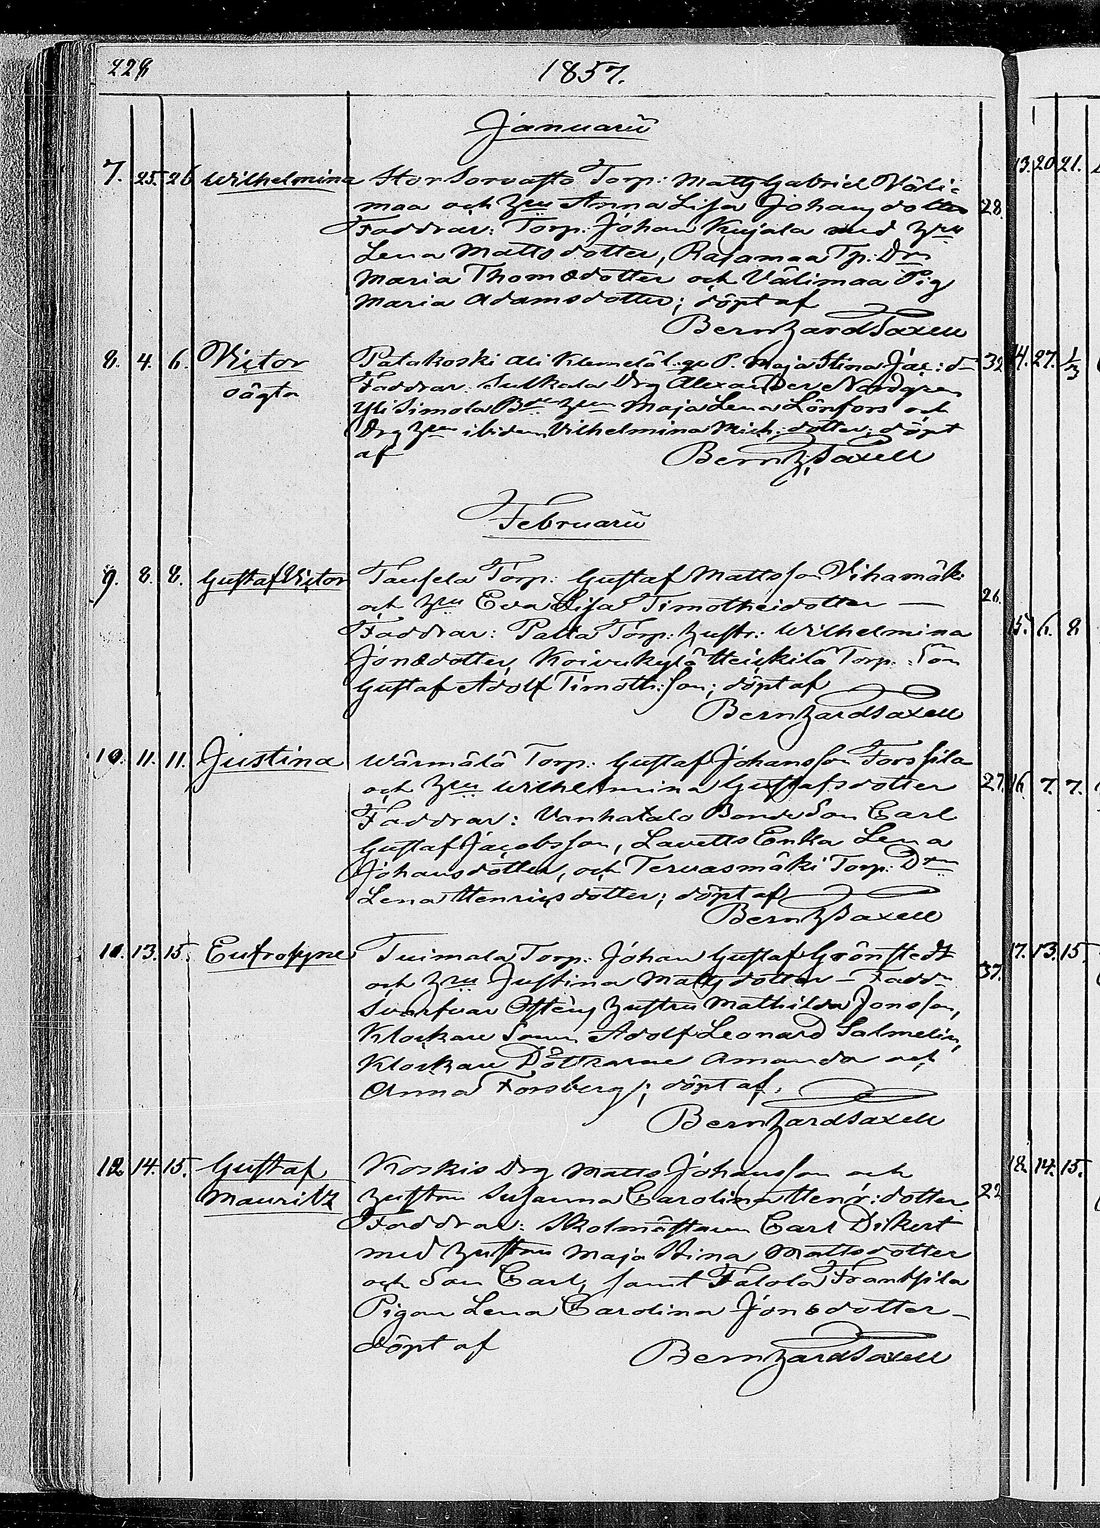 228
1857.
Januarii
7. 25. 26 Wilhelmina Stor Sorvasto Torp: Matts Gabriel Väli=
maa och Hru Anna Lisa Johansdotter 28.
Faddrar: Torp. Johan Kujala med Hru
Lena Mattsdotter, Rajamaa Tp: Drn
Maria Thomædotter och Välimaa Pig
Maria Adamsdotter; döpt af
Bernhard Saxell
8. 4. 6. Victor Patakoski Ali P. Maja Stina Jac: d 32
oägta Faddrar: Drg Alexander Nordgren
Yli Simola Bde Hru Maja Lena Lönfors och
Drg Hru ibidem Vilhelmina Mich: dotter; döpt
af Bernh, Saxell
Februarii
9. 8. 8. Gustaf Victor Torp: Gustaf Mattsson Vihamäki
och Hru Eva Lisa Timotheidotter — 26.
Faddrar: Palta Torp: Hustr: Wilhelmina
Jonædotter, Koivukylä Heickilä Torp: Son
Gustaf Adolf Timoth: son; döpt af
Bernhard Saxell
10. 11. 11. Justina Wärmälä Torp: Gustaf Johansson Forssila
och Hru Wilhelmina Gustafsdotter 27.
Faddrar: Vanhatalo Bonde Son Carl
Gustaf Jacobsson, Enka Lena
Johansdotter, och Tervasmäki Torp: Drn
Lena Henricsdotter; döpt af
Bernh Saxell
11. 13. 15. Eufrosyne Tuimala Torp: Johan Gustaf Grönstedt
och Hru Justina Mattsdotter — Fadd: 37.
Hustru Mathilda Jonsson,
Klockare Sonen Adolf Leonard Salmelin,
Klockare Döttrarne Amanda och
Anna Forsberg; döpt af,
Bernhard Saxell
12 14. 15. Gustaf Koskis Drg Matts Johansson och
Mauritz hustru Susanna Carolina Henr: dotter 22
Faddrar: Skolmästaren Carl Dikert
med hustru Maja Stina Mattsdotter
och Son Carl, samt Falola Frantsila
Pigan Lena Carolina Jonsdotter —
döpt af Bernhard Saxell
13. 20. 21.
14. 27. 1/3
15. 6. 8
16. 7. 7.
17. 13. 15.
18. 14. 15.